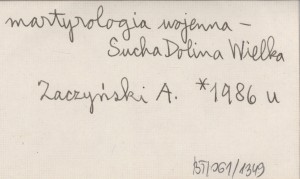 martyrologia wojenna –
Sucha Dolina Wielka
Zaczyński A. *1986 u
BT/261/1349